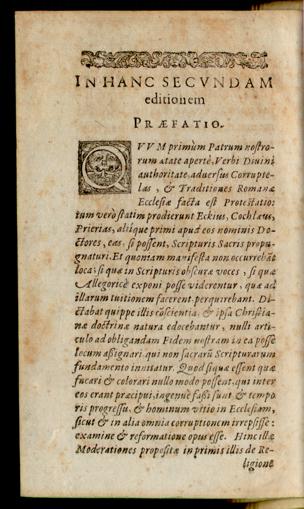 IN HANC SECVNDAM
editionem
PRÆFATIO.
QVVM primùm Patrum nostro-
rum ætate apertè, Verbi Divini
authoritate, adversus Corrupte-
las, & Traditiones Romanæ
Ecclesiæ facta est Protestatio:
tum verò statim prodierunt Eckius, Cochlæus,
Prierias, aliique primi apud eos nominis Do-
ctores, eas, si possent, Scripturis Sacris propu-
gnaturi. Et quoniam manifesta non occurrebāt
loca: si quæ in Scripturis obscuræ voces, si quæ
Allegoricè exponi posse viderentur, quæ ad
illarum tuitionem facerent perquirebant. Di-
ctabat quippe illis cōscientia, & ipsa Christia-
næ doctrinæ natura edocebantur, nulli arti-
culo ad obligandam Fidem nostram in ea posse
locum aßignari, qui non sacrarū Scripturarum
fundamento innitatur. Quod si quæ essent quæ
fucari & colorari nullo modo possent, qui inter
eos erant præcipui, ingenuè faßi sunt & tempo
ris progressu, & hominum vitio in Ecclesiam,
sicut & in alia omnia corruptionem irrepsisse:
examine & reformatione opus esse. Hinc illæ
Moderationes propositæ in primis illis de Re-
ligione